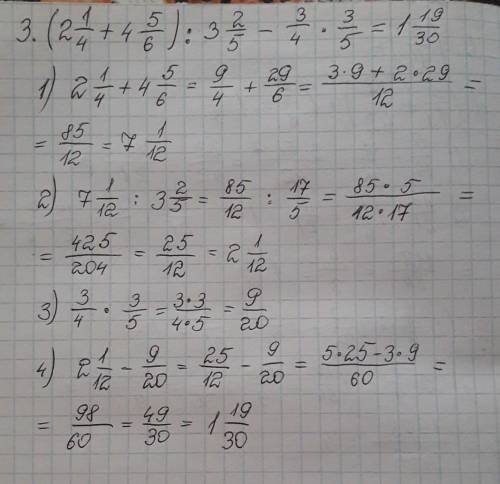 3. (2 1/4 + 4 5/6) : 3 2/5 - 3/4 · 3/5 = 1 19/30
1) 2 1/4 + 4 5/6 = 9/4 + 29/6 = (3·9 + 2·29)/12 =
= 85/12 = 7 1/12
2) 7 1/12 : 3 2/5 = 85/12 : 17/5 = (85·5)/(12·17) =
= 425/204 = 25/12 = 2 1/12
3) 3/4 · 3/5 = (3·3)/(4·5) = 9/20
4) 2 1/12 - 9/20 = 25/12 - 9/20 = (5·25-3·9)/60 =
= 98/60 = 49/30 = 1 19/30